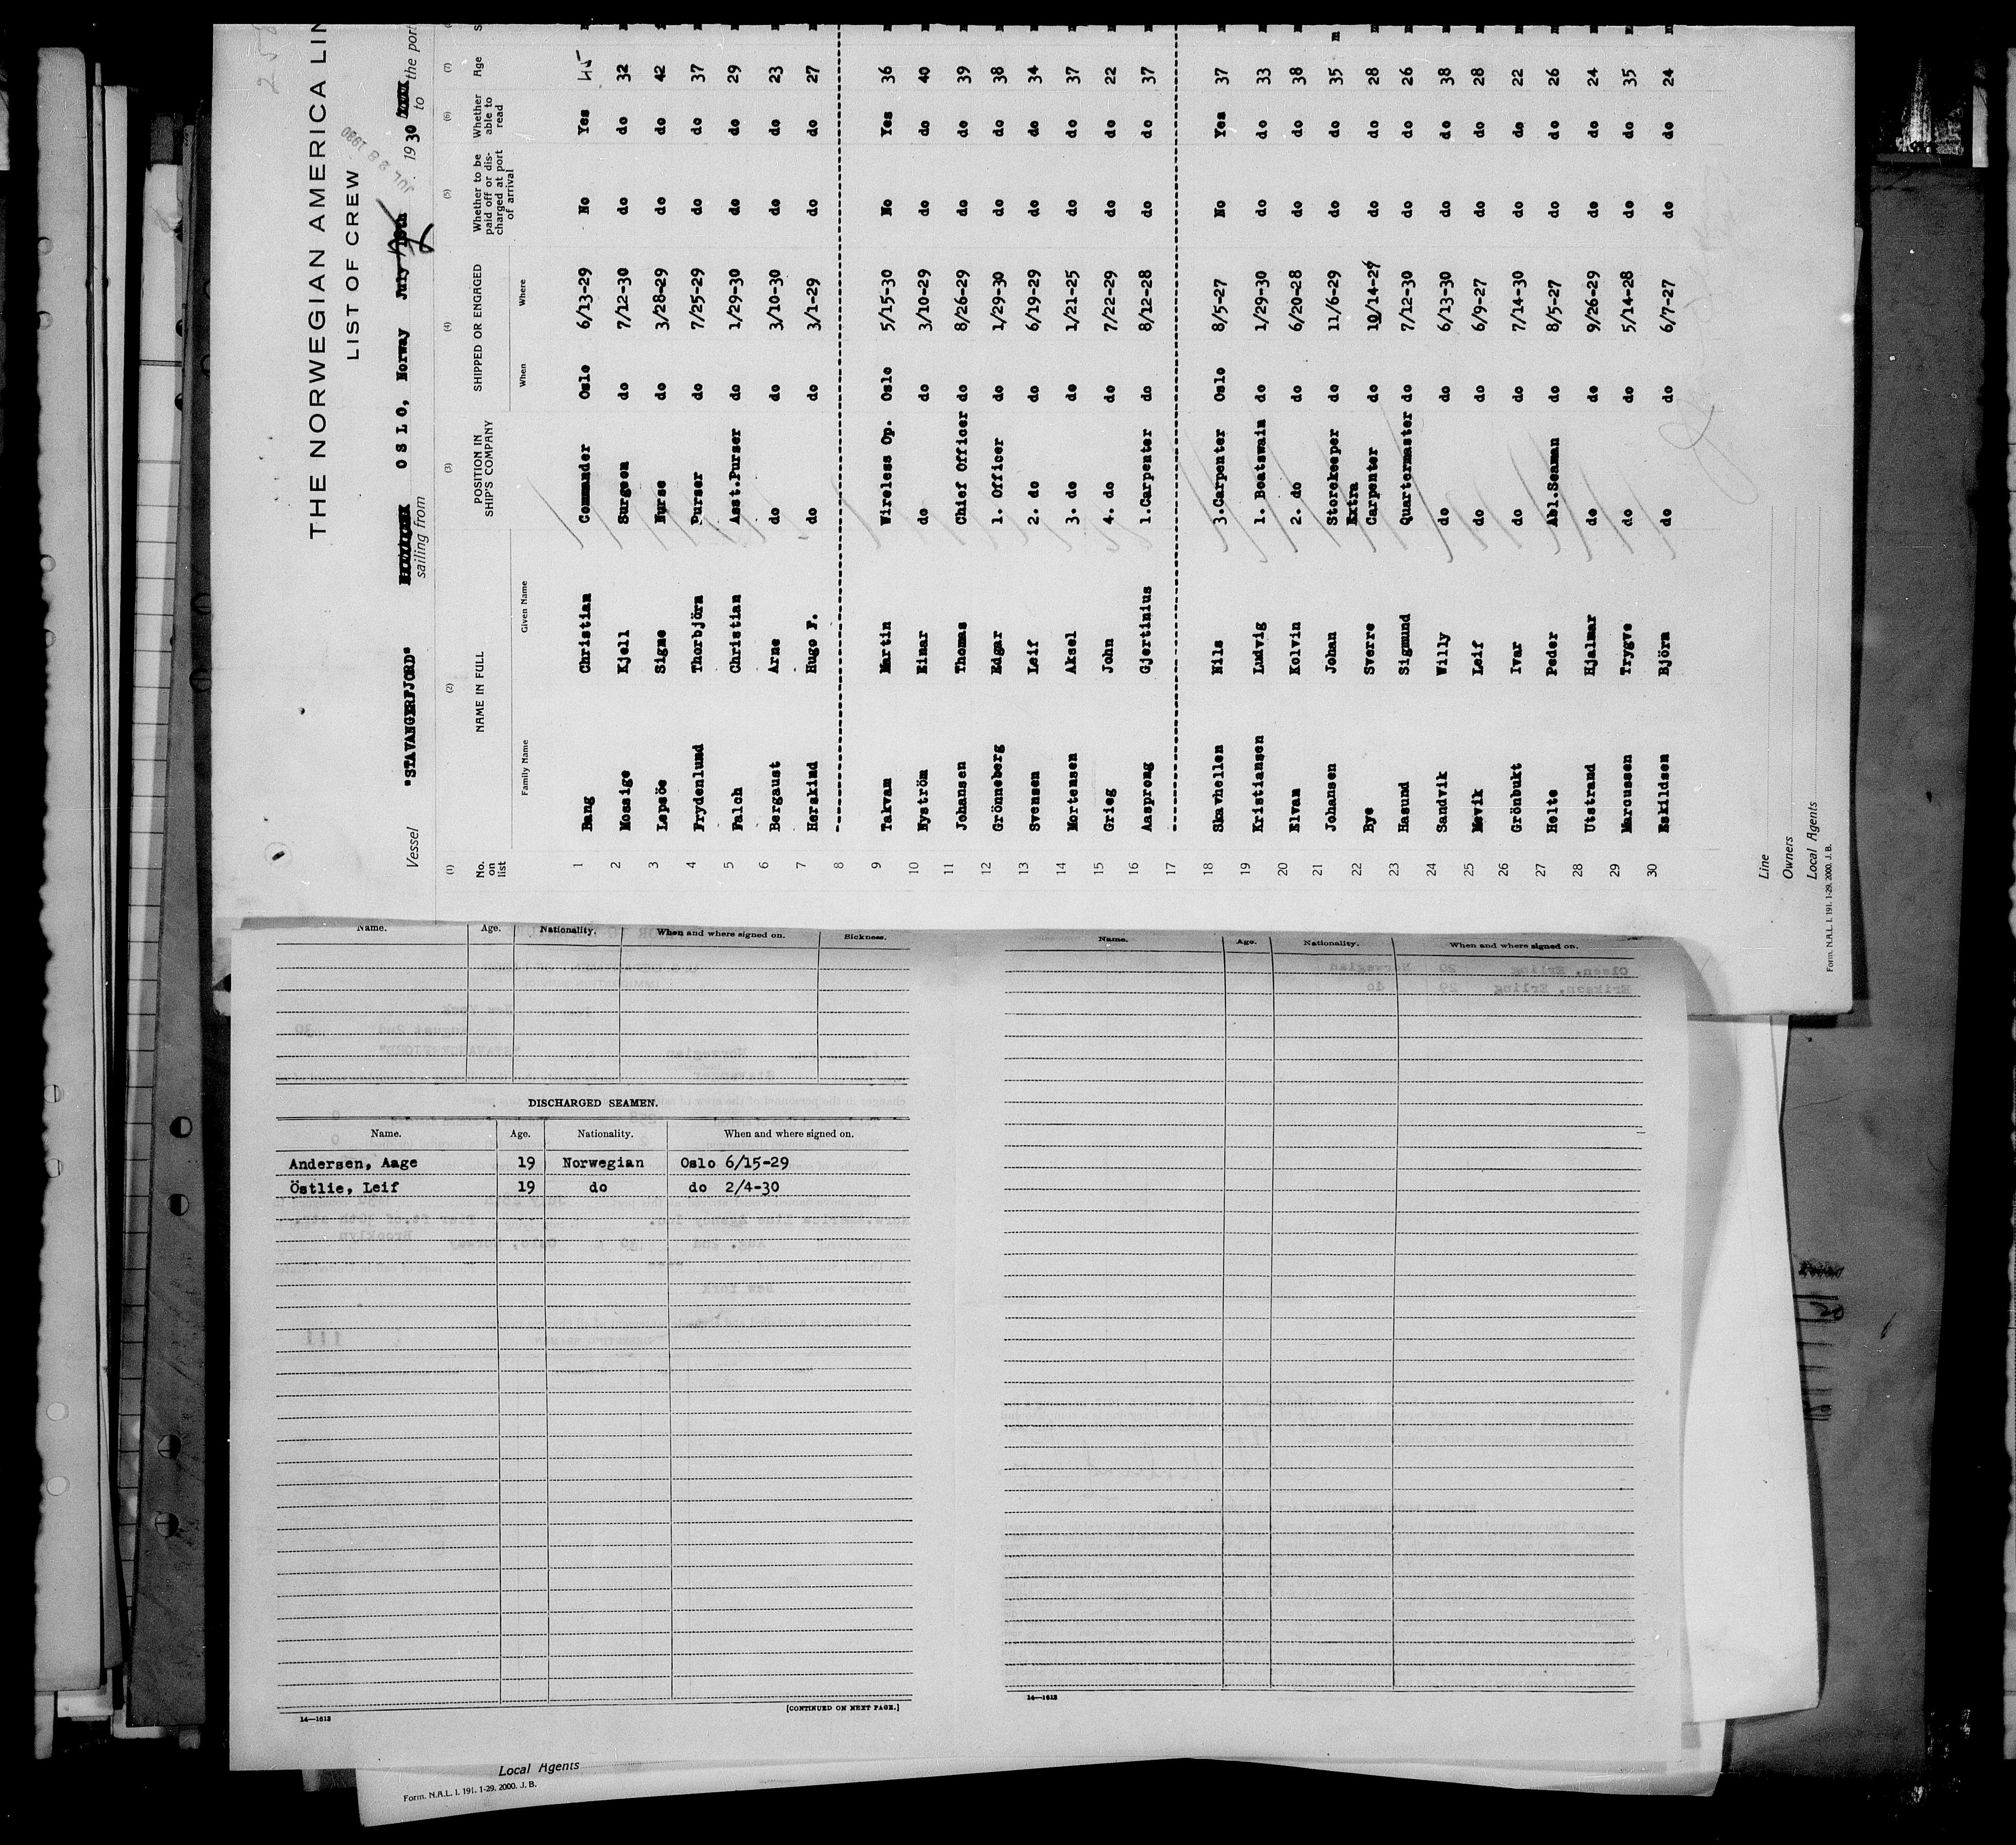 THE NORWEGIAN AMERICA LIN
LIST OF CREW
Vessel "STAVANGERFJORD" sailing from OSLO, Norway July 1930 to the port
JUL 28 1930
(1) (2) (3) (4) (5) (6) (7)
No. on list NAME IN FULL POSITION IN SHIP'S COMPANY SHIPPED OR ENGAGED Whether to be paid off or dis-charged at port of arrival Whether able to read Age S
Family Name Given Name When Where
1 Bang Christian Commander Oslo 6/13-29 No Yes 45
2 Mossige Kjell Surgeon do 7/12-30 do do 32
3 Lepsöe Signe Nurse do 3/28-29 do do 42
4 Frydenlund Thorbjörn Purser do 7/25-29 do do 37
5 Falch Christian Asst.Purser do 1/29-30 do do 29
6 Bergaust Arne do do 3/10-30 do do 23
7 Herskind Hugo F. do do 3/1-29 do do 27
8
9 Takvam Martin Wireless Op. Oslo 5/15-30 No Yes 36
10 Nyström Einar do do 3/10-29 do do 40
11 Johansen Thomas Chief Officer do 8/26-29 do do 39
12 Grönneberg Edgar 1. Officer do 1/29-30 do do 38
13 Svensen Leif 2. do do 6/19-29 do do 34
14 Mortensen Aksel 3. do do 1/21-25 do do 37
15 Grieg John 4. do do 7/22-29 do do 22
16 Aasprong Gjertinius 1.Carpenter do 8/12-28 do do 37
17
18 Skavhellen Nils 3.Carpenter Oslo 8/5-27 No Yes 37
19 Kristiansen Ludvig 1. Boatswain do 1/29-30 do do 33
20 Elvan Kolvin 2. do do 6/20-28 do do 38
21 Johansen Johan Storekeeper do 11/6-29 do do 35 m
22 Bye Sverre Extra Carpenter do 10/14-27 do do 28
23 Hasund Sigmund Quartermaster do 7/12-30 do do 26
24 Sandvik Willy do do 6/13-30 do do 38
25 Mevik Leif do do 6/9-27 do do 28
26 Grönbukt Ivar do do 7/14-30 do do 22
27 Holte Peder Abl.Seaman do 8/5-27 do do 26
28 Utstrand Hjalmar do do 9/26-29 do do 24
29 Marcussen Trygve do do 5/14-28 do do 35
30 Eskildsen Björn do do 6/7-27 do do 24
Line
Owners
Local Agents
Form. N.A.L. I. 191. 1-29. 2000. J. B.
Name. Age. Nationality. When and where signed on. Sickness.
DISCHARGED SEAMEN.
Name. Age. Nationality. When and where signed on.
Andersen, Aage 19 Norwegian Oslo 6/15-29
Östlie, Leif 19 do do 2/4-30
14—1613
[CONTINUED ON NEXT PAGE.]
Name. Age. Nationality. When and where signed on.
14—1613
Local Agents
Form. N.A.L. I. 191. 1-29. 2000. J. B.